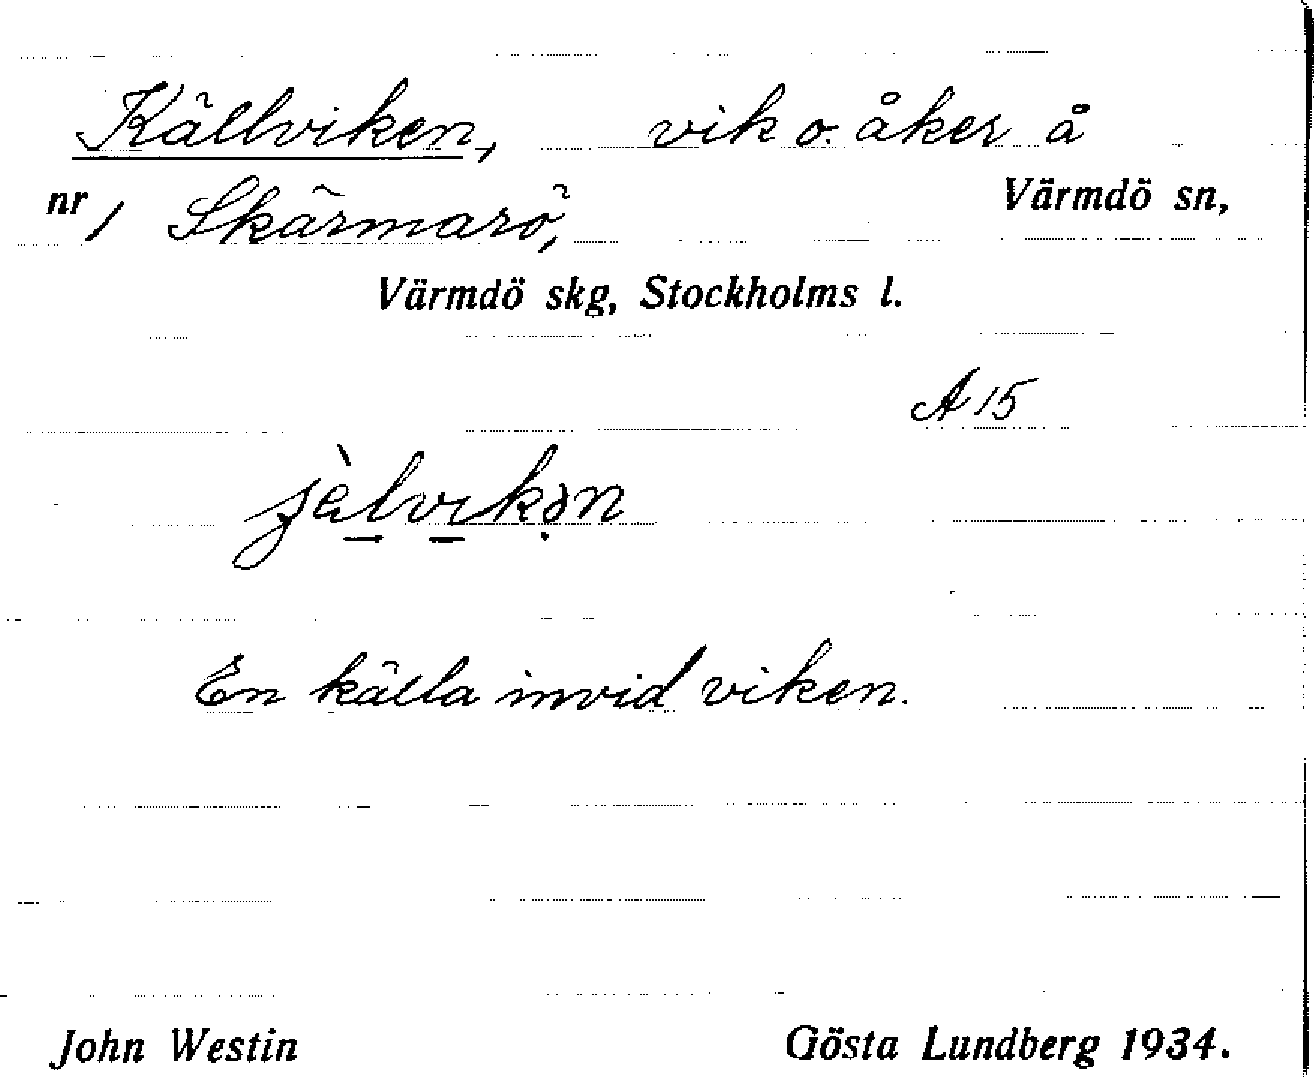 Källviken, vik o. åker å
nr 1 Skärmarö, Värmdö sn,
Värmdö skg, Stockholms l.
A 15
jèlvikən
En källa invid viken.
John Westin Gösta Lundberg 1934.